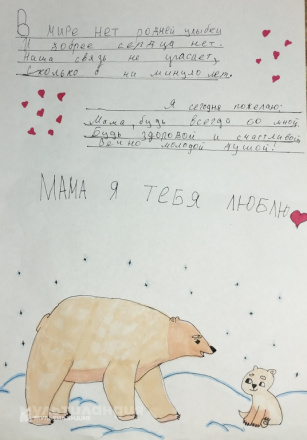 В мире нет родней улыбки
И добрее сердца нет.
Наша связь не угаснет,
Сколько б ни минуло лет.
Я сегодня пожелаю:
Мама, будь всегда со мной,
Будь здоровой и счастливой
Вечно молодой душой!
МАМА Я ТЕБЯ ЛЮБЛЮ